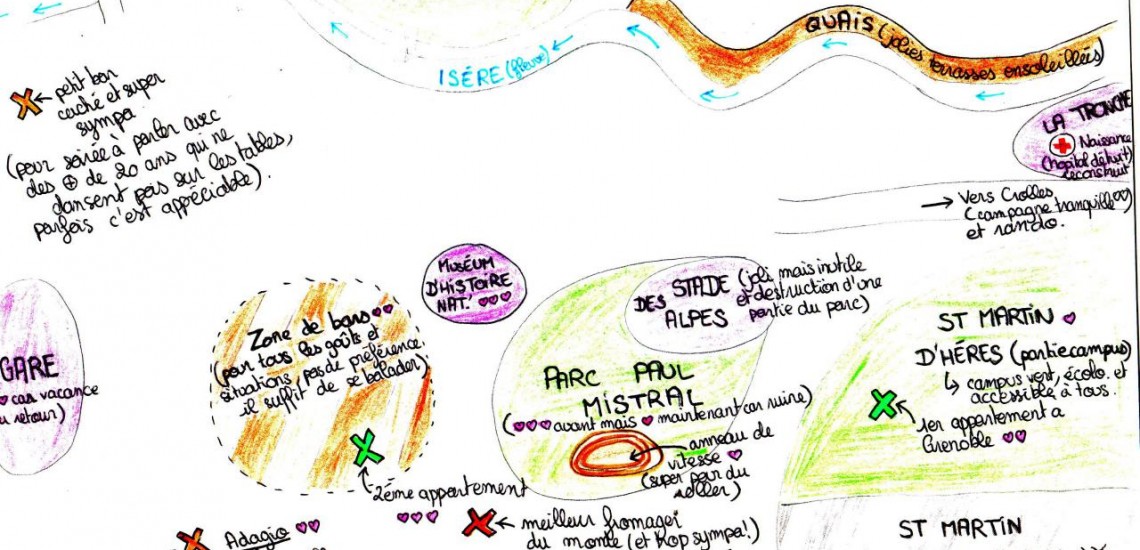 QUAIS (jolies terrasses ensoleillés)
ISÉRE (fleuve)
petit bar
caché et super
sympa
(pour soirée à parler avec
des ⊕ de 20 ans qui ne
dansent pas sur les tables,
parfois c'est appréciable).
LA TRONCHE
Naissance
(hopital détruit/
reconstruit
→ Vers Crolles
(campagne tranquille ♡♡)
et rando.
MUSÉUM
D'HISTOIRE
NAT. ♡♡♡
DES STADE (joli mais inutile
ALPES et destruction d'une
partie du parc)
GARE
♡ car vacance
retour)
Zone de bars ♡♡
(pour tous les goûts et
situations, pas de préférence
il suffit de se balader)
2éme appartement
♡♡♡
PARC PAUL
MISTRAL
(♡♡♡ avant mais ♡ maintenant car ruine)
anneau de
vitesse ♡
(super pour du
roller)
ST MARTIN ♡
D'HÉRES (partie campus)
↳ campus vert, écolo. et
accessible à tous.
1er appartement a
Grenoble ♡♡
Adagio ♡♡
meilleur fromager
du monde (et trop sympa!)
ST MARTIN